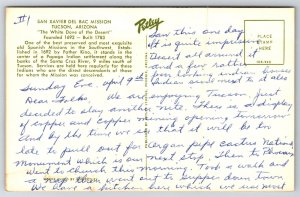 #1
SAN XAVIER DEL BAC MISSION
TUCSON, ARIZONA
"The White Dove of the Desert"
Founded 1692 — Built 1783
One of the best preserved and most exquisite
old Spanish Missions in the Southwest. Established
in 1692 by Father Kino, it stands in the
center of a Papago Indian settlement along the
banks of the Santa Cruz River, 9 miles south of
Tucson. Services are held here regularly for these
Indians who are the direct descendants of those
for whom the Mission was founded.
Petley
PLACE
STAMP
HERE
Saw this one day
It is quite impressive
Desert all around it
and a few
houses
Indian
next to it also
Sunday Eve. April
Dear Folks, We are enjoying Tucson. Just
decided to stay another nite. There is a display
of copper and copper mining opening tomorrow
and by the time we see that it will be too
late to pull out for Organ pipe Cactus National
Monument which is our next stop. Then to Phoenix
Went to church this
Took a walk and
a
went out to supper down town
We have a kitchen here which we use